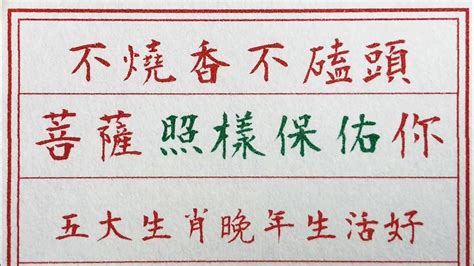 不燒香不磕頭
菩薩照樣保佑你
五大生肖晚年生活好